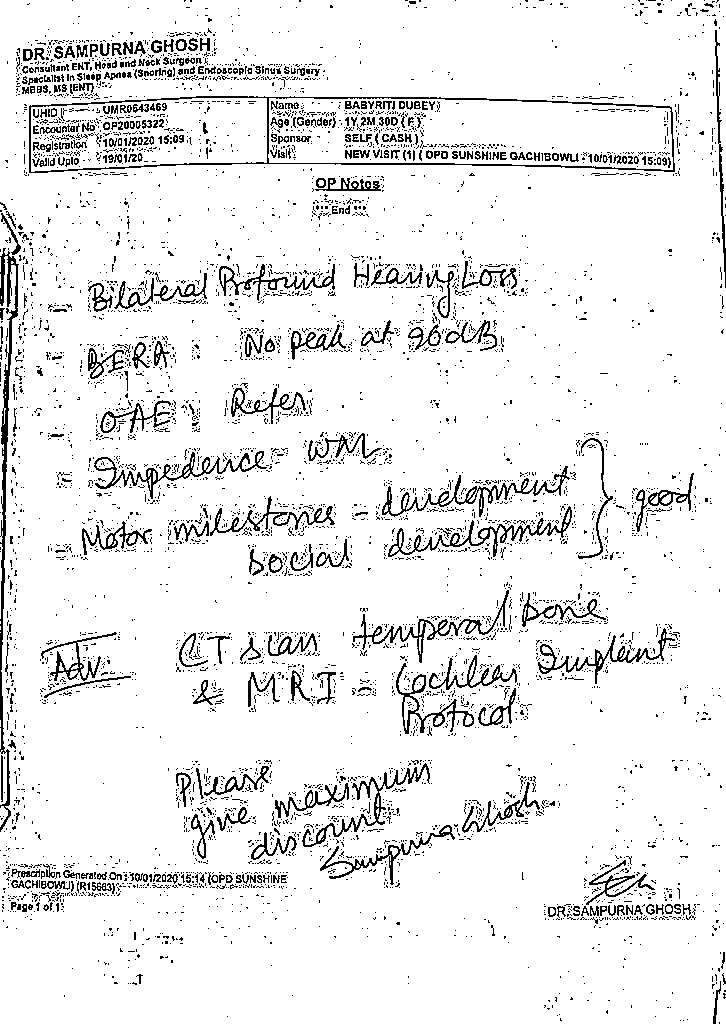 DR. SAMPURNA GHOSH
Consultant ENT, Head and Neck Surgeon
Specialist in Sleep Apnea (Snoring) and Endoscopic Sinus Surgery
MBBS, MS (ENT)
UHID : UMR0643469
Encounter No : OP20005322
Registration : 10/01/2020 15:09
Valid Upto : 19/01/20
Name : BABYRITI DUBEY
Age (Gender) : 1Y 2M 30D ( F )
Sponsor SELF ( CASH )
Visit NEW VISIT (1) ( OPD SUNSHINE GACHIBOWLI - 10/01/2020 15:09)
OP Notes
*** End ***
- Bilateral Profound Hearing Loss
- BERA : No peak at 90dB
- OAE : Refer
- Impedence - WNL
- Motor milestones - development
Social development } good
Adv. CT Scan temporal bone
& MRI - Cochlear Implant
Protocol
Please
give maximum
discount
Sampurna Ghosh
Prescription Generated On : 10/01/2020 15:14 (OPD SUNSHINE
GACHIBOWLI) (R15683)
Page 1 of 1
DR. SAMPURNA GHOSH